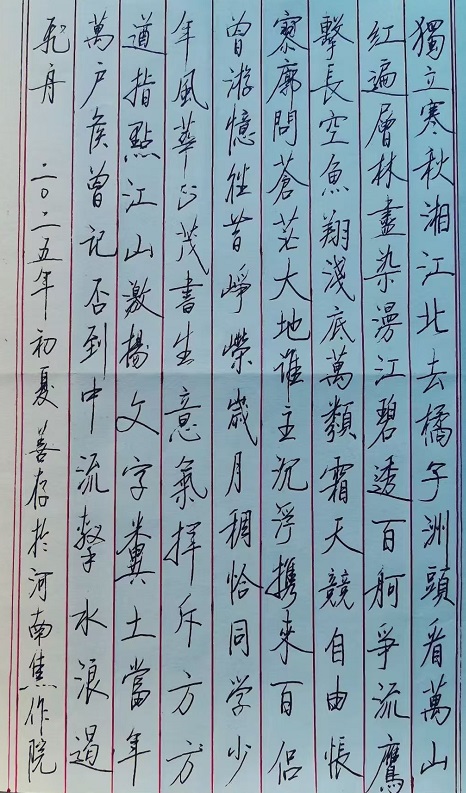 獨立寒秋湘江北去橘子洲頭看萬山
紅遍層林盡染漫江碧透百舸爭流鷹
擊長空魚翔淺底萬類霜天競自由悵
寥廓問蒼茫大地誰主沉浮携來百侣
曾游憶往昔崢嶸歲月稠恰同学少
年風華正茂書生意氣揮斥方方
道指點江山激揚文字糞土當年
萬户侯曾記否到中流擊水浪遏
飛舟 二〇二五年初夏 善存於河南焦作院